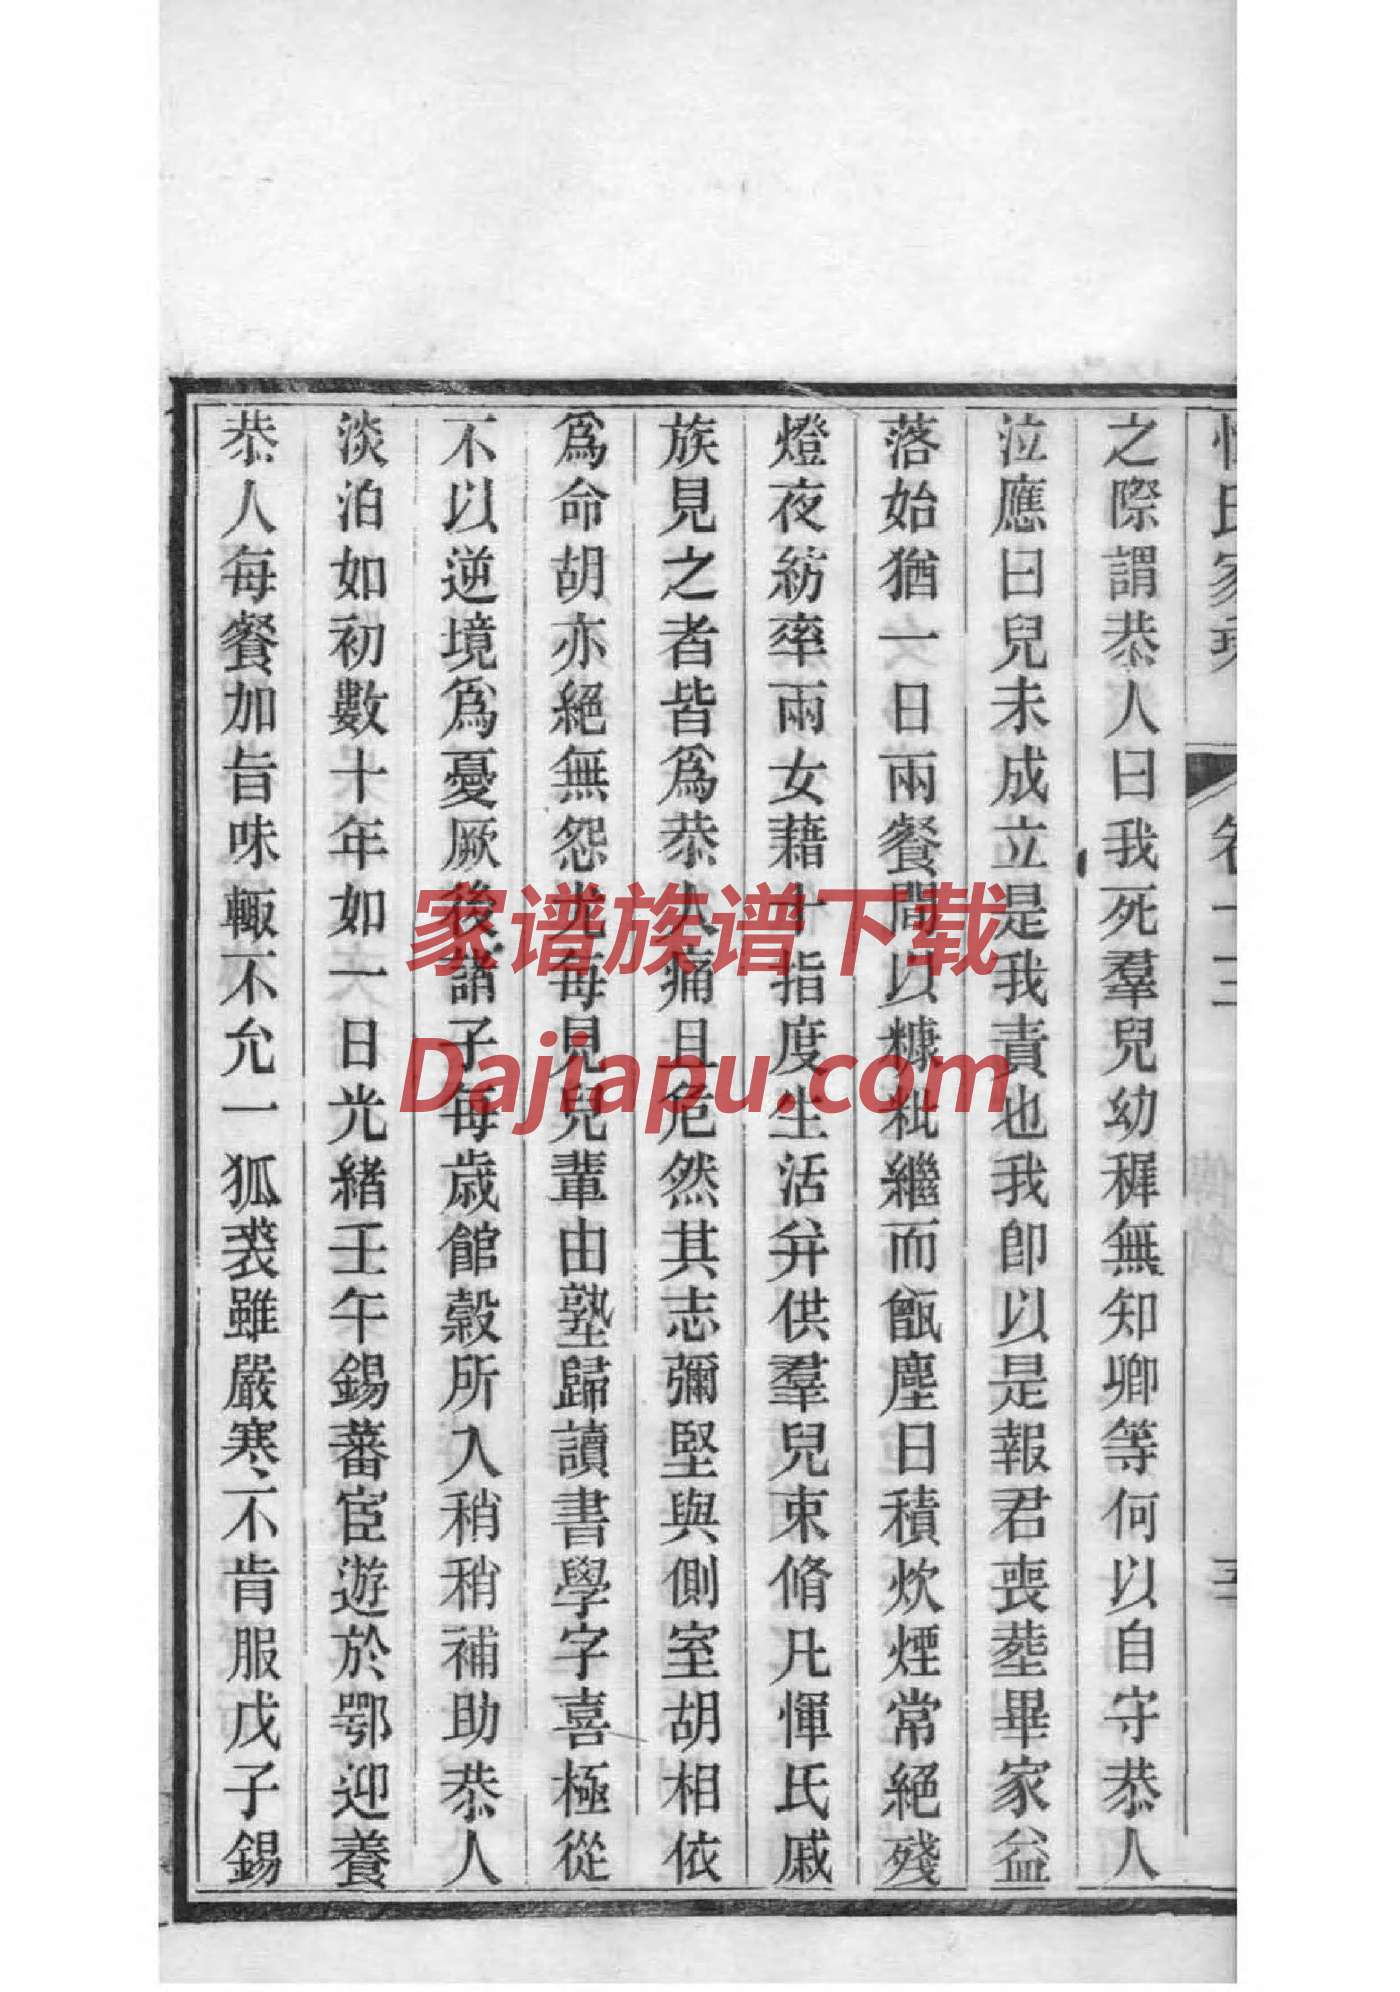 之際謂恭人曰我死羣兒幼穉無知卿等何以自守恭人
泣應曰兒未成立是我責也我卽以是報君喪塟畢家益
落始猶一日兩餐間以糠粃繼而甑塵日積炊煙常絕殘
燈夜紡率兩女藉十指度生活并供羣兒束脩凡惲氏戚
族見之者皆爲恭人痛且危然其志彌堅與側室胡相依
爲命胡亦絕無怨尤每見兒輩由塾歸讀書學字喜極從
不以逆境爲憂厥後諸子每歲館穀所入稍稍補助恭人
淡泊如初數十年如一日光緒壬午錫蕃宦遊於鄂迎養
恭人每餐加旨味輙不允一狐裘雖嚴寒不肯服戊子錫
家谱族谱下载
Dajiapu.com